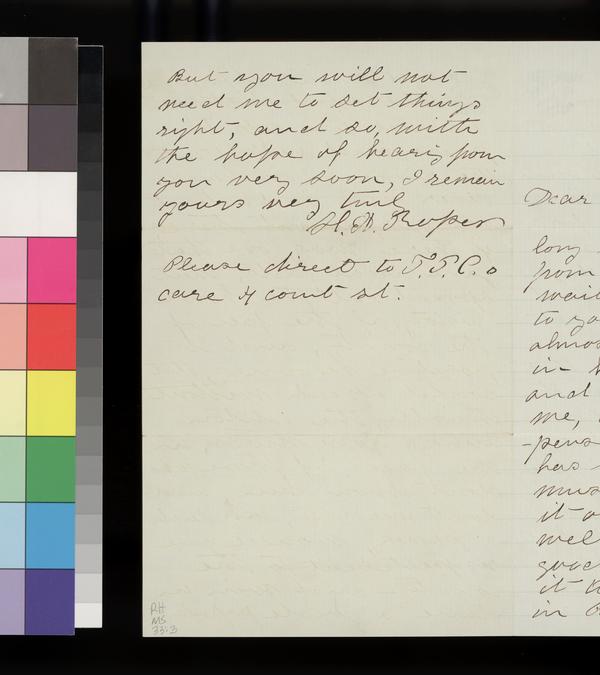 But you will not
need me to set things
right, and so, with
the hope of hearing from
you very soon, I remain
yours very truly
Please direct to
care 4 court st.
Dear
long
from
wait
to yo
almos
in
and
me,
-pens
has
mus
it
wel
good
it
in
RH
MS
33:3